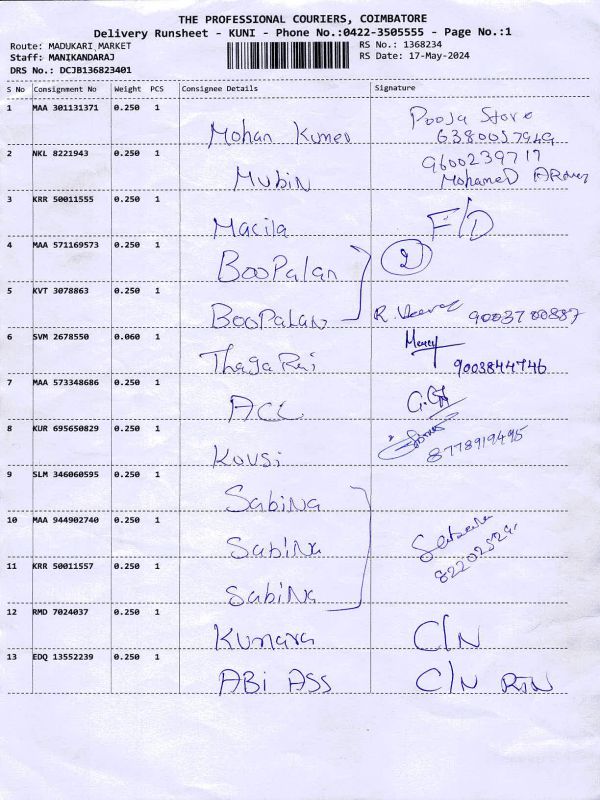 THE PROFESSIONAL COURIERS, COIMBATORE
Delivery Runsheet - KUNI - Phone No.:0422-3505555 - Page No.:1
Route: MADUKARI MARKET RS No.: 1368234
Staff: MANIKANDARAJ RS Date: 17-May-2024
DRS No.: DCJB136823401
S No Consignment No Weight PCS Consignee Details Signature
1 MAA 301131371 0.250 1 Mohan Kumer Pooja Store
2 NKL 8221943 0.250 1 Mubin 9600239717
Mohamed
3 KRR 50011555 0.250 1 Macila F/D
4 MAA 571169573 0.250 1 BooPalan 2
5 KVT 3078863 0.250 1 BooPalan R. 9003780887
6 SVM 2678550 0.060 1 9003844746
7 MAA 573348686 0.250 1 ACC
8 KUR 695650829 0.250 1 Kovsi 8778919495
9 SLM 346060595 0.250 1 Sabina
10 MAA 944902740 0.250 1 Sabina
11 KRR 50011557 0.250 1 Sabina
12 RMD 7024037 0.250 1 Kumara C/N
13 EDQ 13552239 0.250 1 ABi ASS C/N RTN